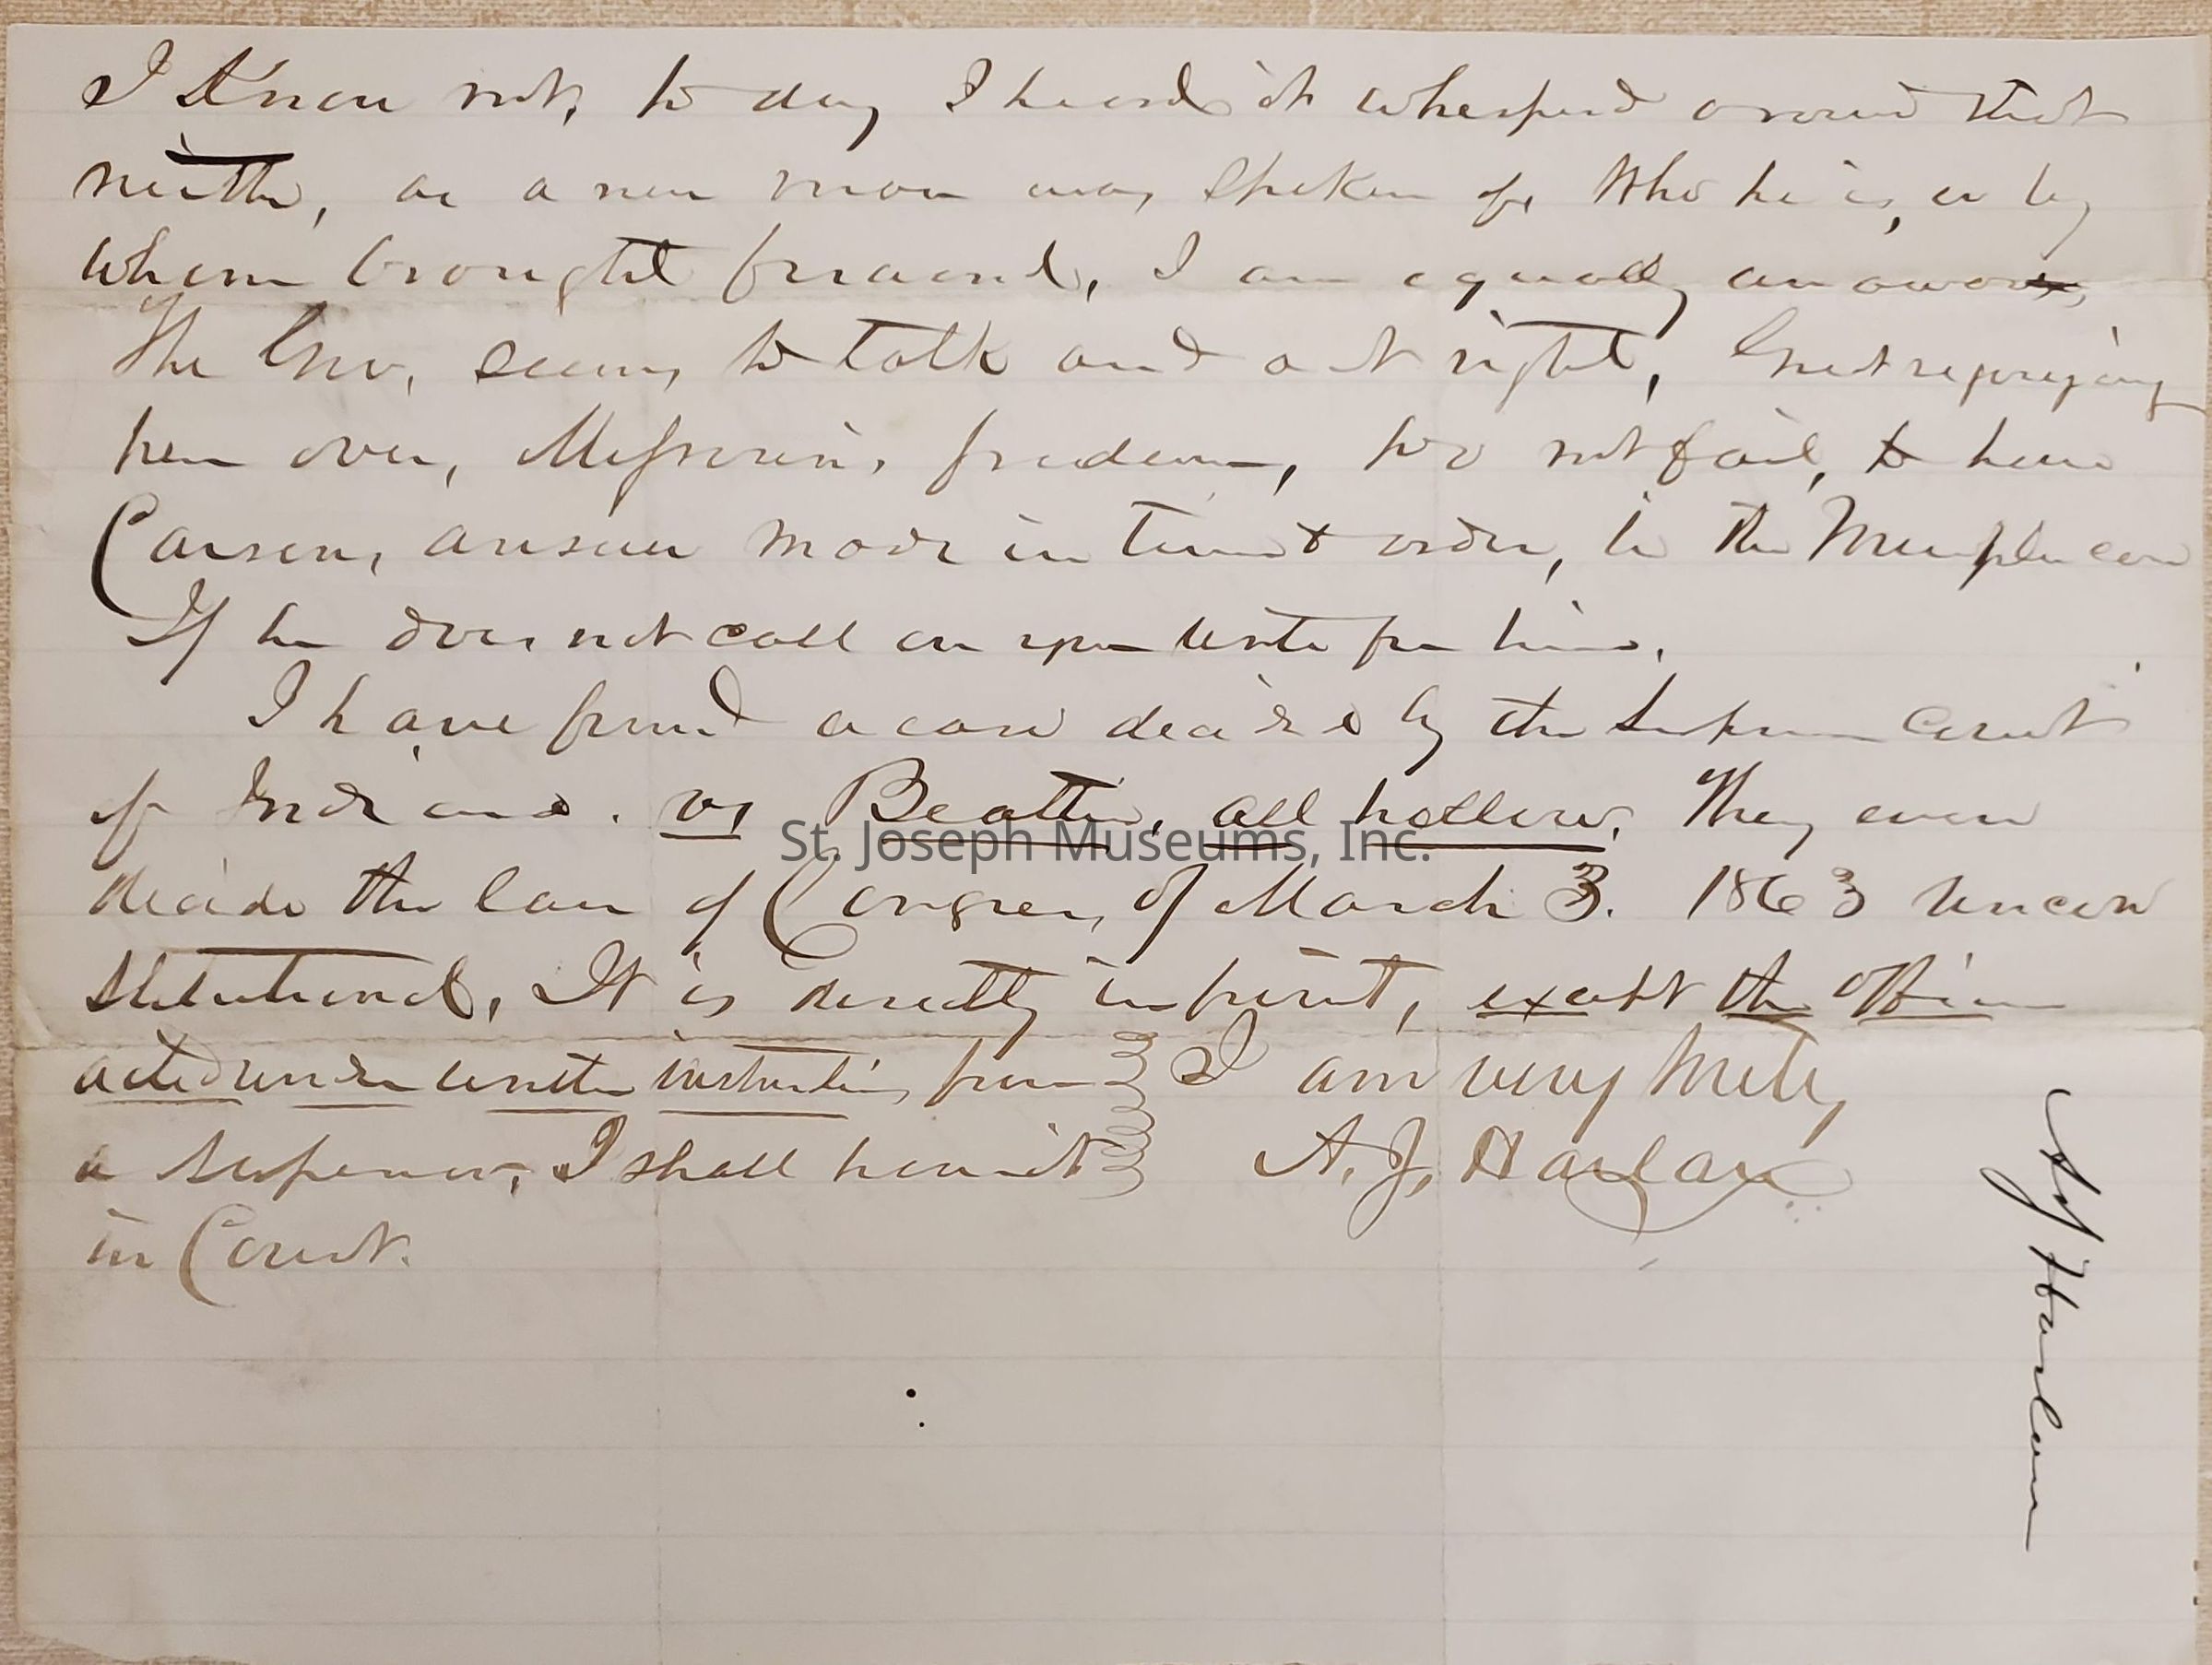 I Know not, to day I heard it whisperd around that
neither, as a new man was spoken of, Who he is, or by
whom brought forward, I am equally unawares
The Gov, seems to talk and act right, Great rejoicing
here over, Missouri's freedom, Do not fail, to have
Carson, answer made in time & order, to the
If he does not call on you write for him.
I have found a case decided by the Supreme Court
of Indiana. vs Beattie, all hollow. They even
decide the law of Congress, of March 3. 1863 uncon
stitutional, It is directly in point, except the Officer
acted under written instructions from
a Superior, I shall have it
in Court.
I am very truly
A. J. Harlan
A J Harlan
St. Joseph Museums, Inc.